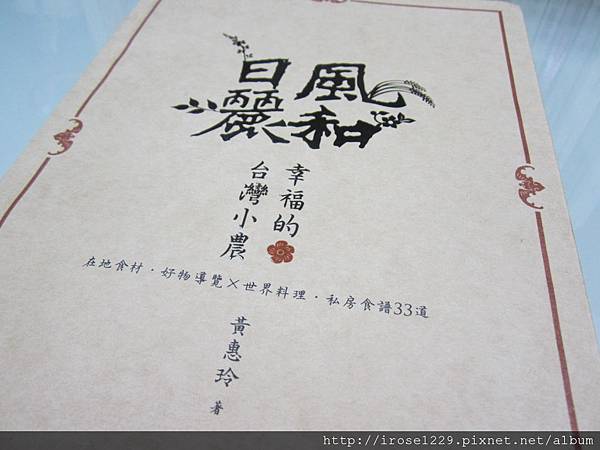 風和
日麗
幸福的
台灣小農
在地食材・好物導覽×世界料理・私房食譜33道
黃惠玲 著
http://irose1229.pixnet.net/album